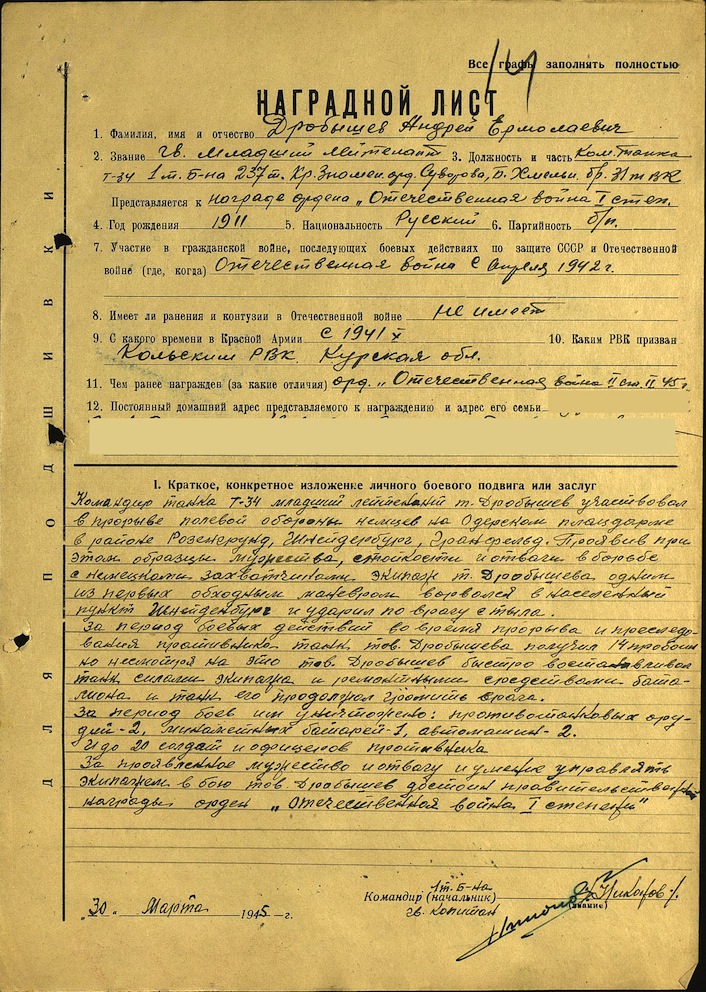 Все графы заполнять полностью
14
НАГРАДНОЙ ЛИСТ
1. Фамилия, имя и отчество Дробышев Андрей Ермолаевич
2. Звание гв. младший лейтенант 3. Должность и часть Ком. танка
Т-34 1 т. б-на 237 т. Кр. Знамен. орд. Суворова, Б. Хмельн. бр. 31 ТК
Представляется к награде ордена „Отечественная война I степ.
4. Год рождения 1911 5. Национальность Русский 6. Партийность б/п.
7. Участие в гражданской войне, последующих боевых действиях по защите СССР и Отечественной
войне (где, когда) Отечественная война с апреля 1942 г.
8. Имеет ли ранения и контузии в Отечественной войне не имеет
9. С какого времени в Красной Армии с 1941 X 10. Каким РВК призван
РВК Курская обл.
11. Чем ранее награжден (за какие отличия) орд. „Отечественная война II ст. II 45 г.
12. Постоянный домашний адрес представляемого к награждению и адрес его семьи
I. Краткое, конкретное изложение личного боевого подвига или заслуг
Командир танка Т-34 младший лейтенант т. Дробышев участвовал
в прорыве полевой обороны немцев на Одерском плацдарме
в районе Розенгрунд, Шнейденбург, Гранфельд. Проявив при
этом образцы мужества, стойкости и отваги в борьбе
с немецкими захватчиками экипаж т. Дробышева одним
из первых обходным маневром ворвался в населенный
пункт Шнейденбург и ударил по врагу с тыла.
За период боевых действий во время прорыва и преследо-
вания противника танк тов. Дробышева получил 14 пробоин
но несмотря на это тов. Дробышев быстро востанавливал
танк силами экипажа и ремонтными средствами бата-
лиона и танк его продолжал громить врага.
За период боев им уничтожено: противотанковых ору-
дий-2, минаметных батарей-1, автомашин-2.
И до 20 солдат и офицеров противника
За проявленное мужество и отвагу и умение управлять
экипажем в бою тов. Дробышев достоин правительственной
награды орден „Отечественная война I степени"
ДЛЯ ПОДШИВКИ
1 т. б-на
Командир (начальник) Никонов
гв. капитан (звание)
„30" Марта 1945 г.